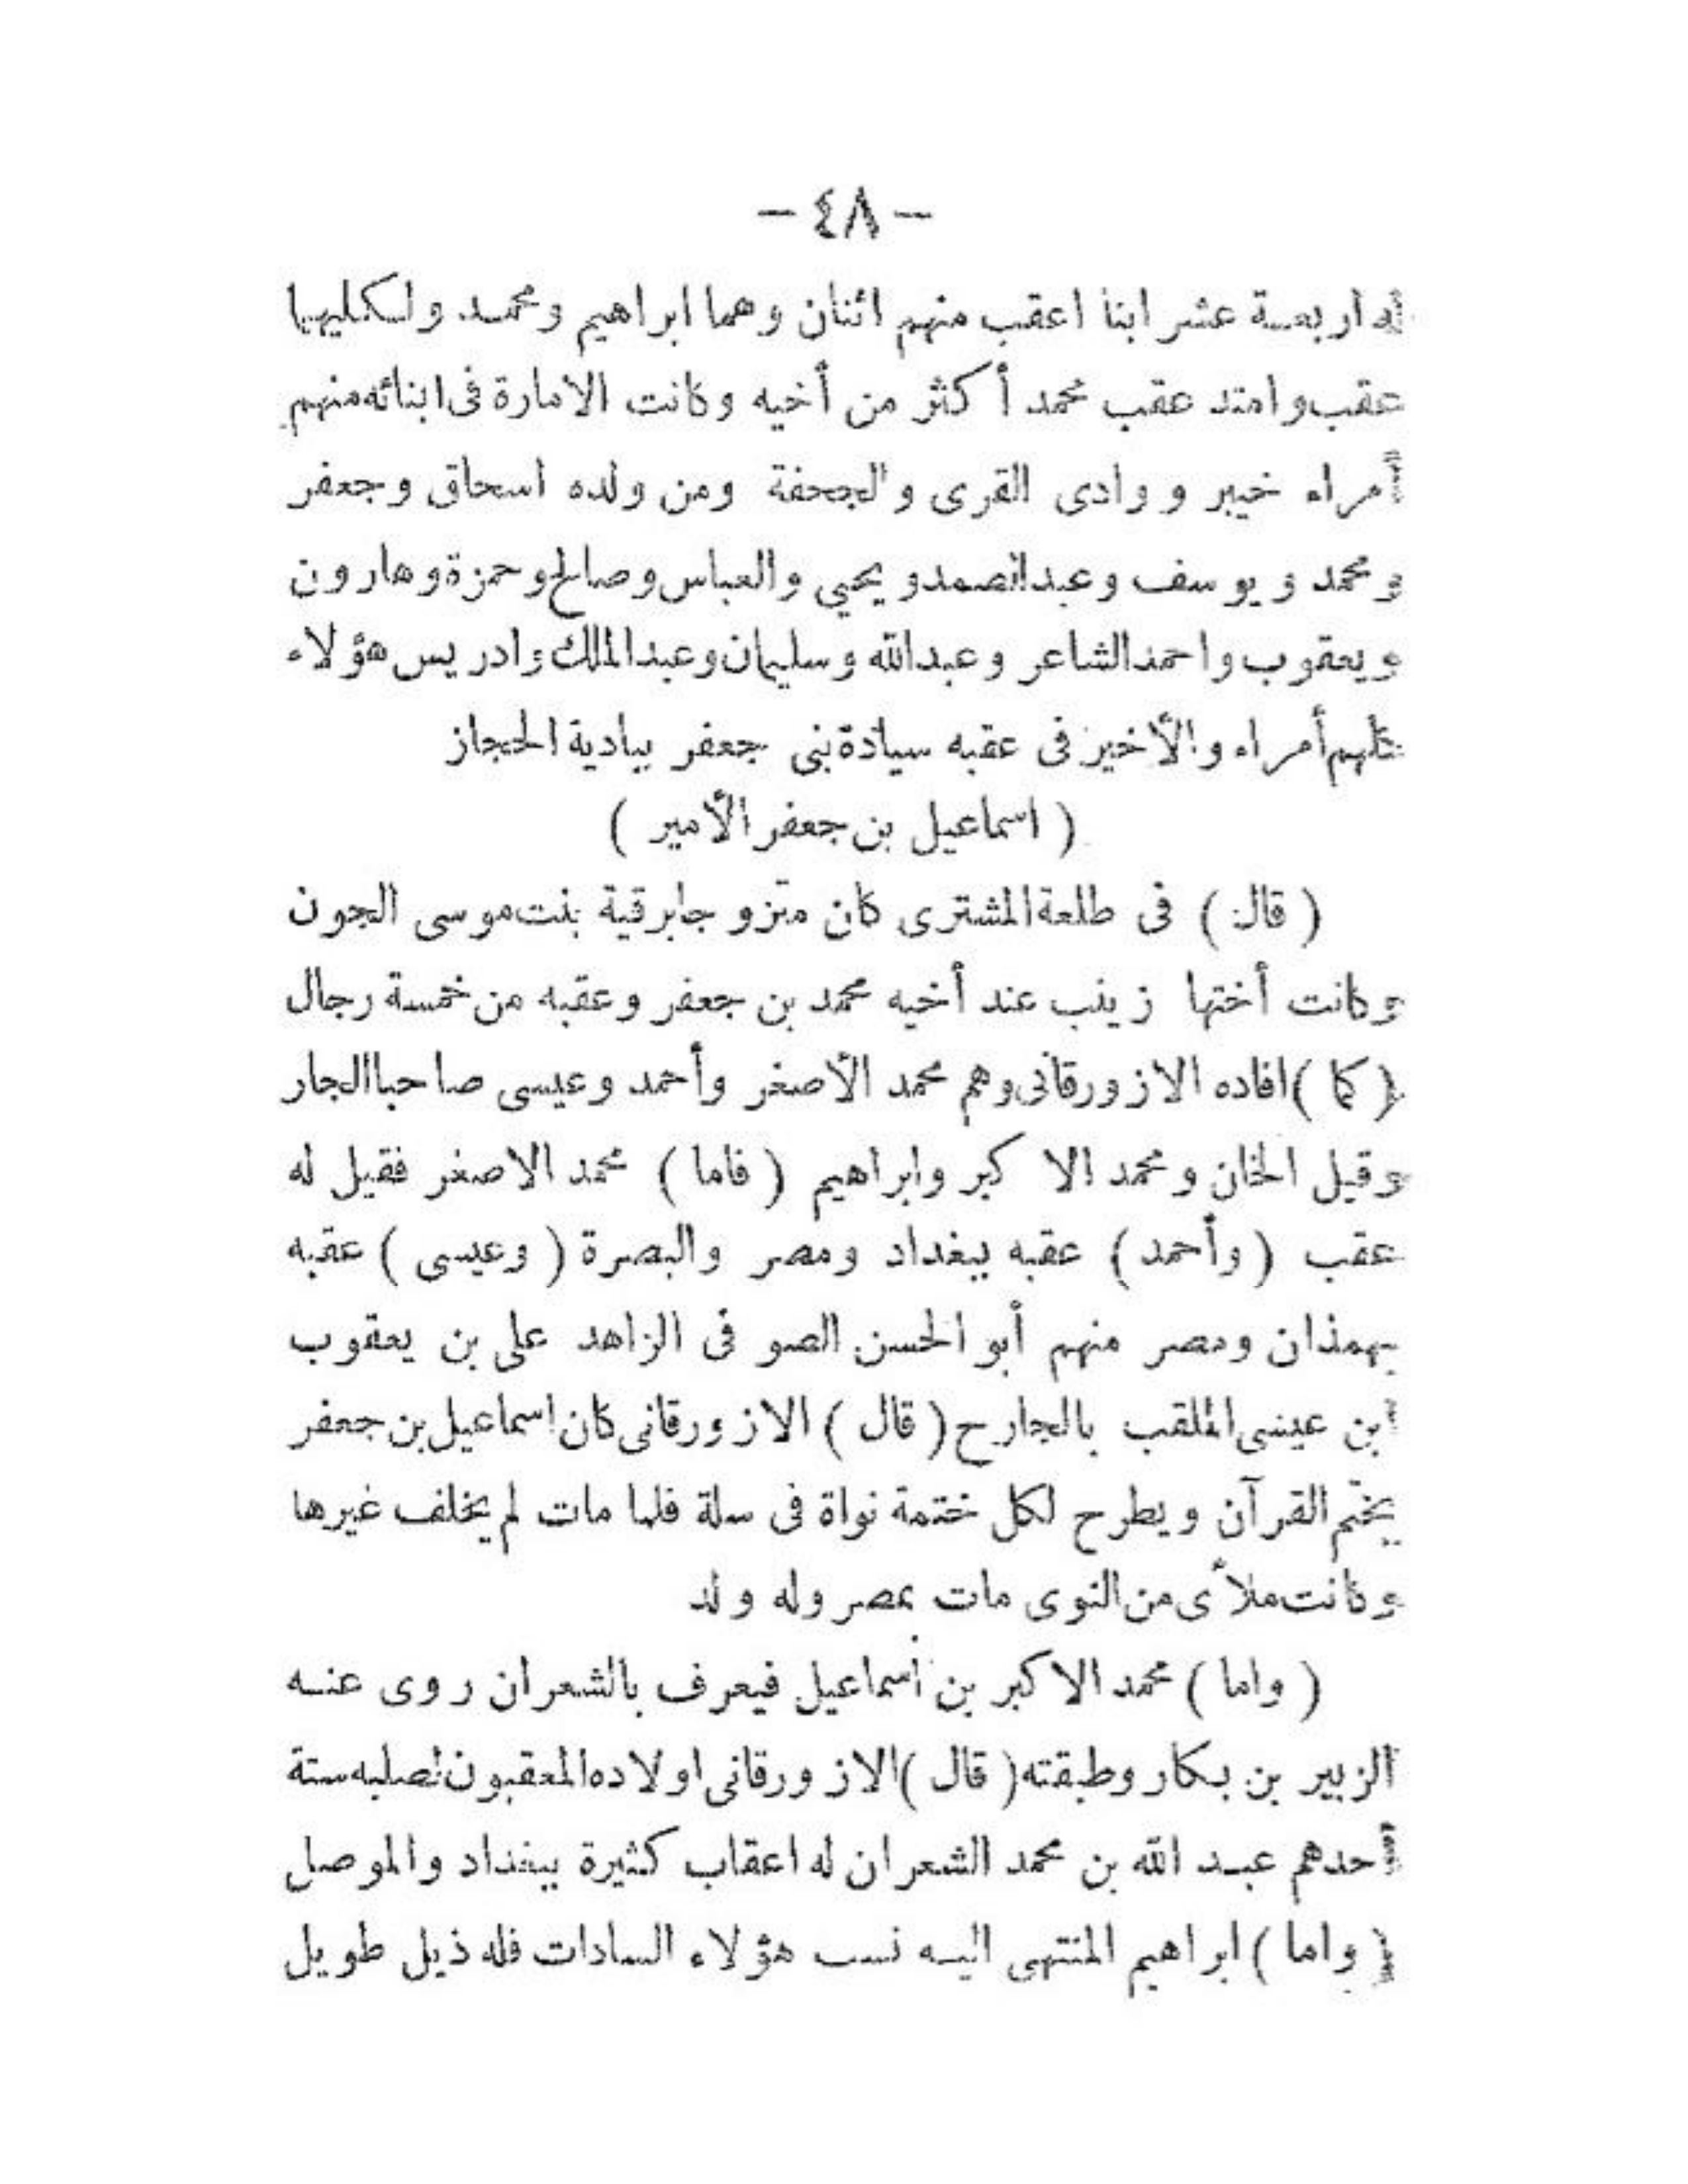 - ٤٨ -
له اربعـة عشر ابنا اعقب منهم اثنان وهما ابراهيم ومحمـد ولـكليهما
عقب وامتد عقب محمد أكثر من أخيه وكانت الامارة فى ابنائه منهم
أمراء خيبر ووادى القرى والجحفة ومن ولده اسحاق وجعفر
ومحمد ويوسف وعبد الصمد ويحيي والعباس وصالح وحمزة وهارون
ويعقوب واحمد الشاعر وعبد الله وسليمان وعبد الملك وادريس هؤلاء
كلهم أمراء والأخير فى عقبه سيادة بنى جعفر ببادية الحجاز
( اسماعيل بن جعفر الأمير )
( قال ) فى طلعة المشترى كان متزوجا برقية بنت موسى الجون
وكانت أختها زينب عند أخيه محمد بن جعفر وعقبه من خمسة رجال
( كما ) افاده الازورقانى وهم محمد الأصغر وأحمد وعيسى صاحبا الجار
وقيل الخان ومحمد الا كبر وابراهيم ( فاما ) محمد الاصغر فقيل له
عقب ( وأحمد ) عقبه ببغداد ومصر والبصرة ( وعيسى ) عقبه
بهمذان ومصر منهم أبو الحسن الصوفى الزاهد على بن يعقوب
ابن عيسى الملقب بالجارح ( قال ) الازورقانى كان اسماعيل بن جعفر
يختم القرآن ويطرح لكل ختمة نواة فى سلة فلما مات لم يخلف غيرها
وكانت ملأى من النوى مات بمصر وله ولد
( واما ) محمد الاكبر بن اسماعيل فيعرف بالشعران روى عنـه
الزبير بن بـكار وطبقته ( قال ) الازورقانى اولاده المعقبون لصلبه ستة
أحدهم عبـد الله بن محمد الشعران له اعقاب كثيرة ببغداد والموصل
( واما ) ابراهيم المنتهى اليـه نسب هؤلاء السادات فله ذيل طويل